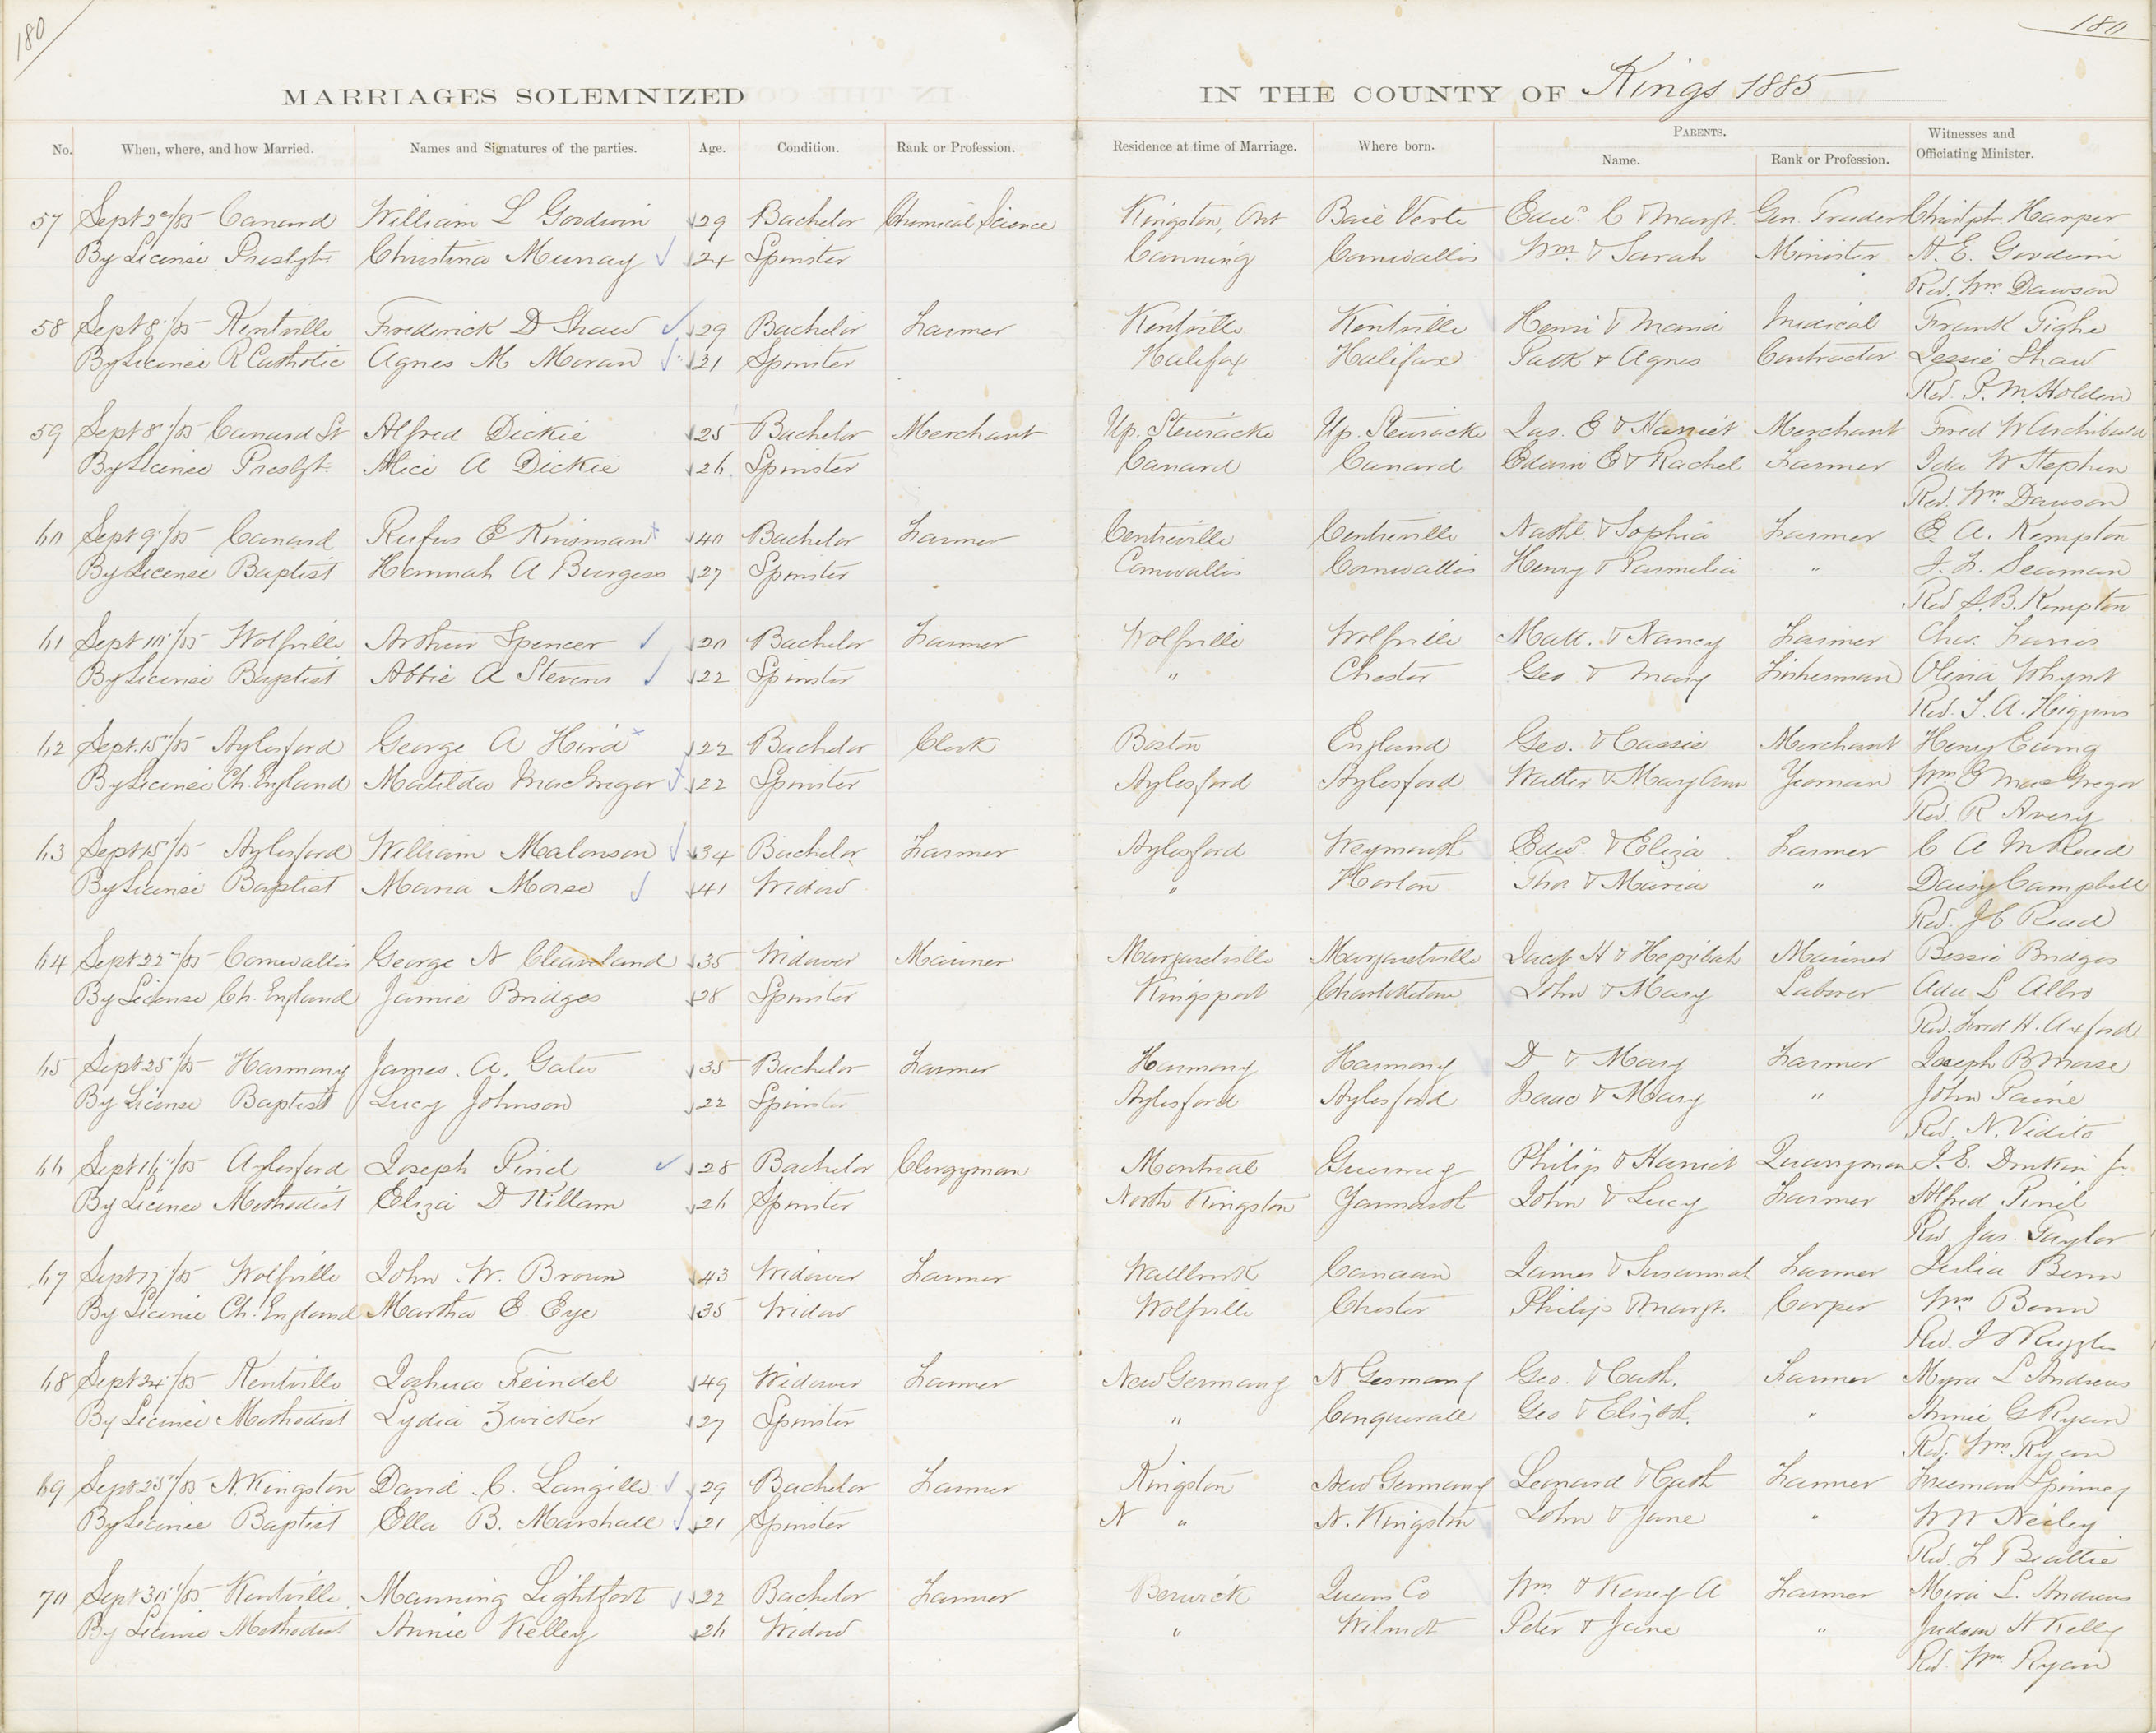 180
180
MARRIAGES SOLEMNIZED IN THE COUNTY OF Kings 1885
No. When, where, and how Married. Names and Signatures of the parties. Age. Condition. Rank or Profession. Residence at time of Marriage. Where born. PARENTS. Name. Rank or Profession. Witnesses and Officiating Minister.
57 Sept 2nd/85 Canard William L Goodwin 29 Bachelor Chemical Science Kingston, Ont Baie Verte Edwd. C & Margt. Gen. Trader Christphr. Harper
By License Presbytn Christina Murray 24 Spinster Canning Cornwallis Wm. & Sarah Minister A. E. Goodwin
Rev. Wm. Dawson
58 Sept 8"/85 Kentville Frederick D Shaw 29 Bachelor Farmer Kentville Kentville Henri & Maria Medical Frank Tighe
By License R Catholic Agnes M Moran 21 Spinster Halifax Halifax Patk & Agnes Contractor Jessie Shaw
Rev. P. M. Holden
59 Sept 8"/85 Canard St Alfred Dickie 25 Bachelor Merchant Up. Stewiacke Up. Stewiacke Jas. E & Harriet Merchant Fred W Archibald
By License Presbyt. Alice A Dickie 26 Spinster Canard Canard Edwin E & Rachel Farmer Ida W Stephen
Rev. Wm Dawson
60 Sept 9"/85 Canard Rufus E Kinsman 40 Bachelor Farmer Centreville Centreville Nathl. & Sophia Farmer E. A. Kempton
By License Baptist Hannah A Burgess 27 Spinster Cornwallis Cornwallis Henry & Parmelia " J. F. Seaman
Rev S. B. Kempton
61 Sept 10"/85 Wolfville Arthur Spencer 20 Bachelor Farmer Wolfville Wolfville Matt. & Nancy Farmer Chas. Farris
By License Baptist Abbie A Stevens 22 Spinster " Chester Geo & Mary Fisherman Olivia Whynot
Rev. T. A. Higgins
62 Sept. 15"/85 Aylesford George A Hird 22 Bachelor Clerk Boston England Geo. & Cassie Merchant Henry Ewing
By License Ch. England Matilda MacGregor 22 Spinster Aylesford Aylesford Walter & Mary Ann Yeoman Wm E MacGregor
Rev. R Avery
63 Sept 15"/85 Aylesford William Malonson 34 Bachelor Farmer Aylesford Weymouth Edwd. & Eliza Farmer C A M Read
By License Baptist Maria Morse 41 Widow " Horton Thos & Maria " Daisy Campbell
Rev. J C Read
64 Sept 22nd/85 Cornwallis George N Cleaveland 35 Widower Mariner Margaretville Margaretville H & Hepzibah Mariner Bessie Bridges
By License Ch. England Jamie Bridges 28 Spinster Kingsport Charlottetown John & Mary Laborer Ada L Albro
Rev. Fred H. Axford
65 Sept 25"/85 Harmony James. A. Gates 35 Bachelor Farmer Harmony Harmony D & Mary Farmer Joseph B Morse
By License Baptist Lucy Johnson 22 Spinster Aylesford Aylesford Isaac & Mary " John Paine
Rev. N. Vidito
66 Sept 16"/85 Aylesford Joseph Pinel 28 Bachelor Clergyman Montreal Guernsey Philip & Harriet Quarryman J. E. Donkin Jr.
By License Methodist Eliza D Killam 26 Spinster North Kingston Yarmouth John & Lucy Farmer Alfred Pinel
Rev. Jas. Taylor
67 Sept 17"/85 Wolfville John. W. Brown 43 Widower Farmer Wallbrook Canaan James & Susannah Farmer Julia Benn
By License Ch. England Martha E Eye 35 Widow Wolfville Chester Philip & Margt. Carper Wm Benn
Rev. J O Ruggles
68 Sept 24"/85 Kentville Jashua Feindel 49 Widower Farmer New Germany N Germany Geo. & Cath. Farmer Myra L Andrews
By License Methodist Lydia Zwicker 27 Spinster " Conquerall Geo & Elizbth. " Annie G Ryan
Rev. Wm. Ryan
69 Sept 25"/85 N. Kingston David. C. Langille 29 Bachelor Farmer Kingston New Germany Leonard & Cath Farmer Freeman Spinney
By License Baptist Ella B. Marshall 21 Spinster N " N. Kingston John & Jane " W W Neiley
Rev. F Beattie
70 Sept 30"/85 Kentville Manning Lightfoot 22 Bachelor Farmer Berwick Queens Co Wm & Kersey A Farmer Myra L. Andrews
By License Methodist Annie Kelley 26 Widow " Wilmot Peter & Jane " Judson H Kelly
Rev. Wm. Ryan